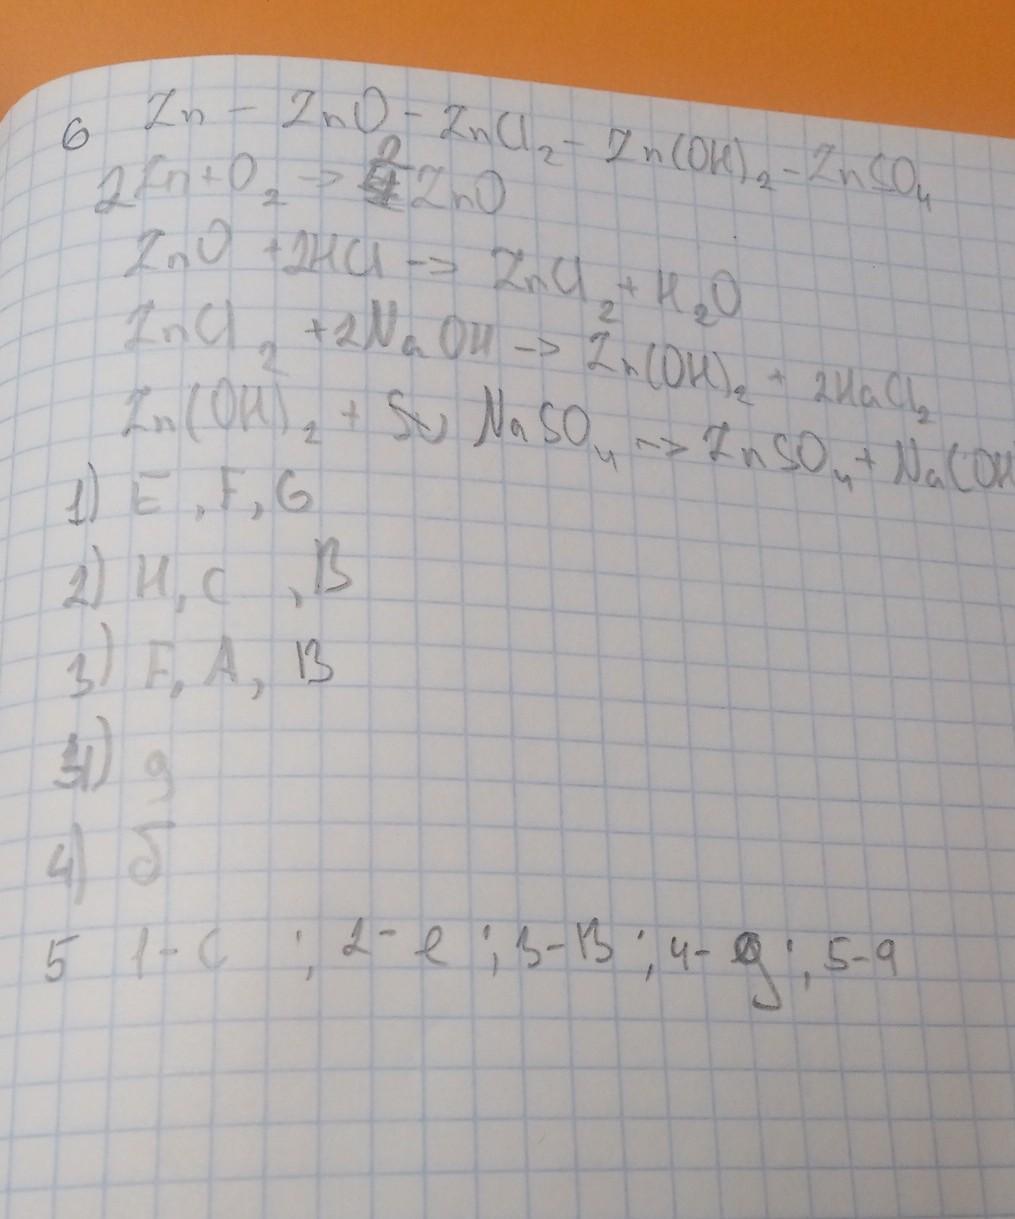 6 Zn - ZnO - ZnCl₂ - Zn(OH)₂ - ZnSO₄
2Zn + O₂ -> 2ZnO
ZnO + 2HCl -> ZnCl₂ + H₂O
ZnCl₂ + 2NaOH -> Zn(OH)₂ + 2NaCl₂
Zn(OH)₂ + NaSO₄ -> ZnSO₄ + Na(OH
1) E, F, G
2) H, C, B
3) F, A, B
3) g
4) б
5 1-C ; 2-e ; 3-B ; 4-g ; 5-a